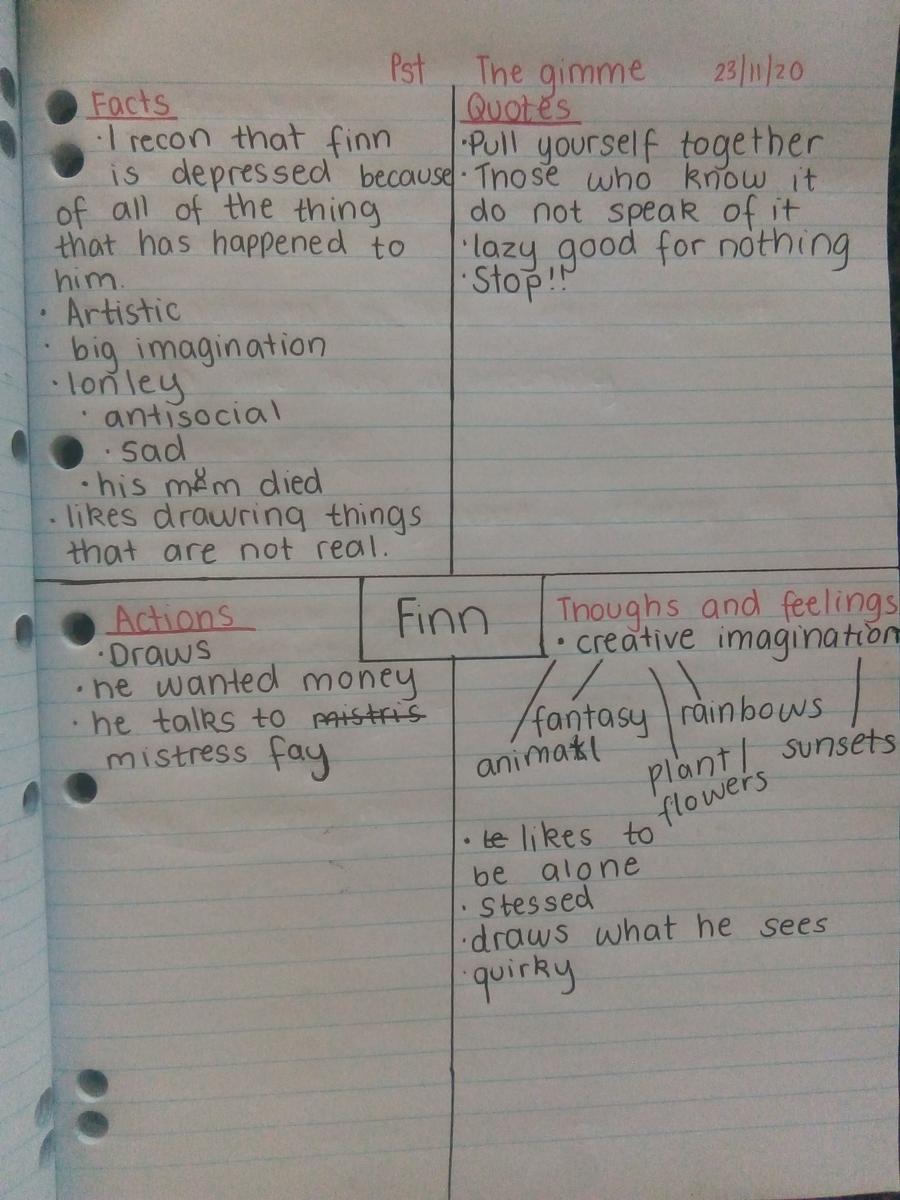 Pst The gimme 23/11/20
Facts
·I recon that finn
is depressed because
of all of the thing
that has happened to
him.
· Artistic
· big imagination
· lonley
· antisocial
· sad
· his mum died
· likes drawring things
that are not real.
Quotes
·Pull yourself together
· Those who know it
do not speak of it
·lazy good for nothing
·Stop!!
Finn
Actions
·Draws
· he wanted money
· he talks to mistris
mistress fay
Thoughs and feelings
· creative imagination
fantasy rainbows
animal plant sunsets
flowers
· le likes to
be alone
· stessed
·draws what he sees
·quirky